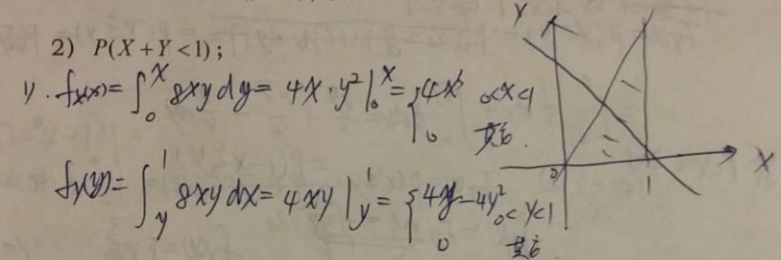 2) P(X+Y<1);
1). fx(x)=∫₀ˣ 8xy dy = 4x·y²|₀ˣ = { 4x³ 0<x<1
0 其它.
fY(y)=∫ᵧ¹ 8xy dx = 4xy|ᵧ¹ = { 4y-4y² 0<y<1
0 其它
Y
X
0
1